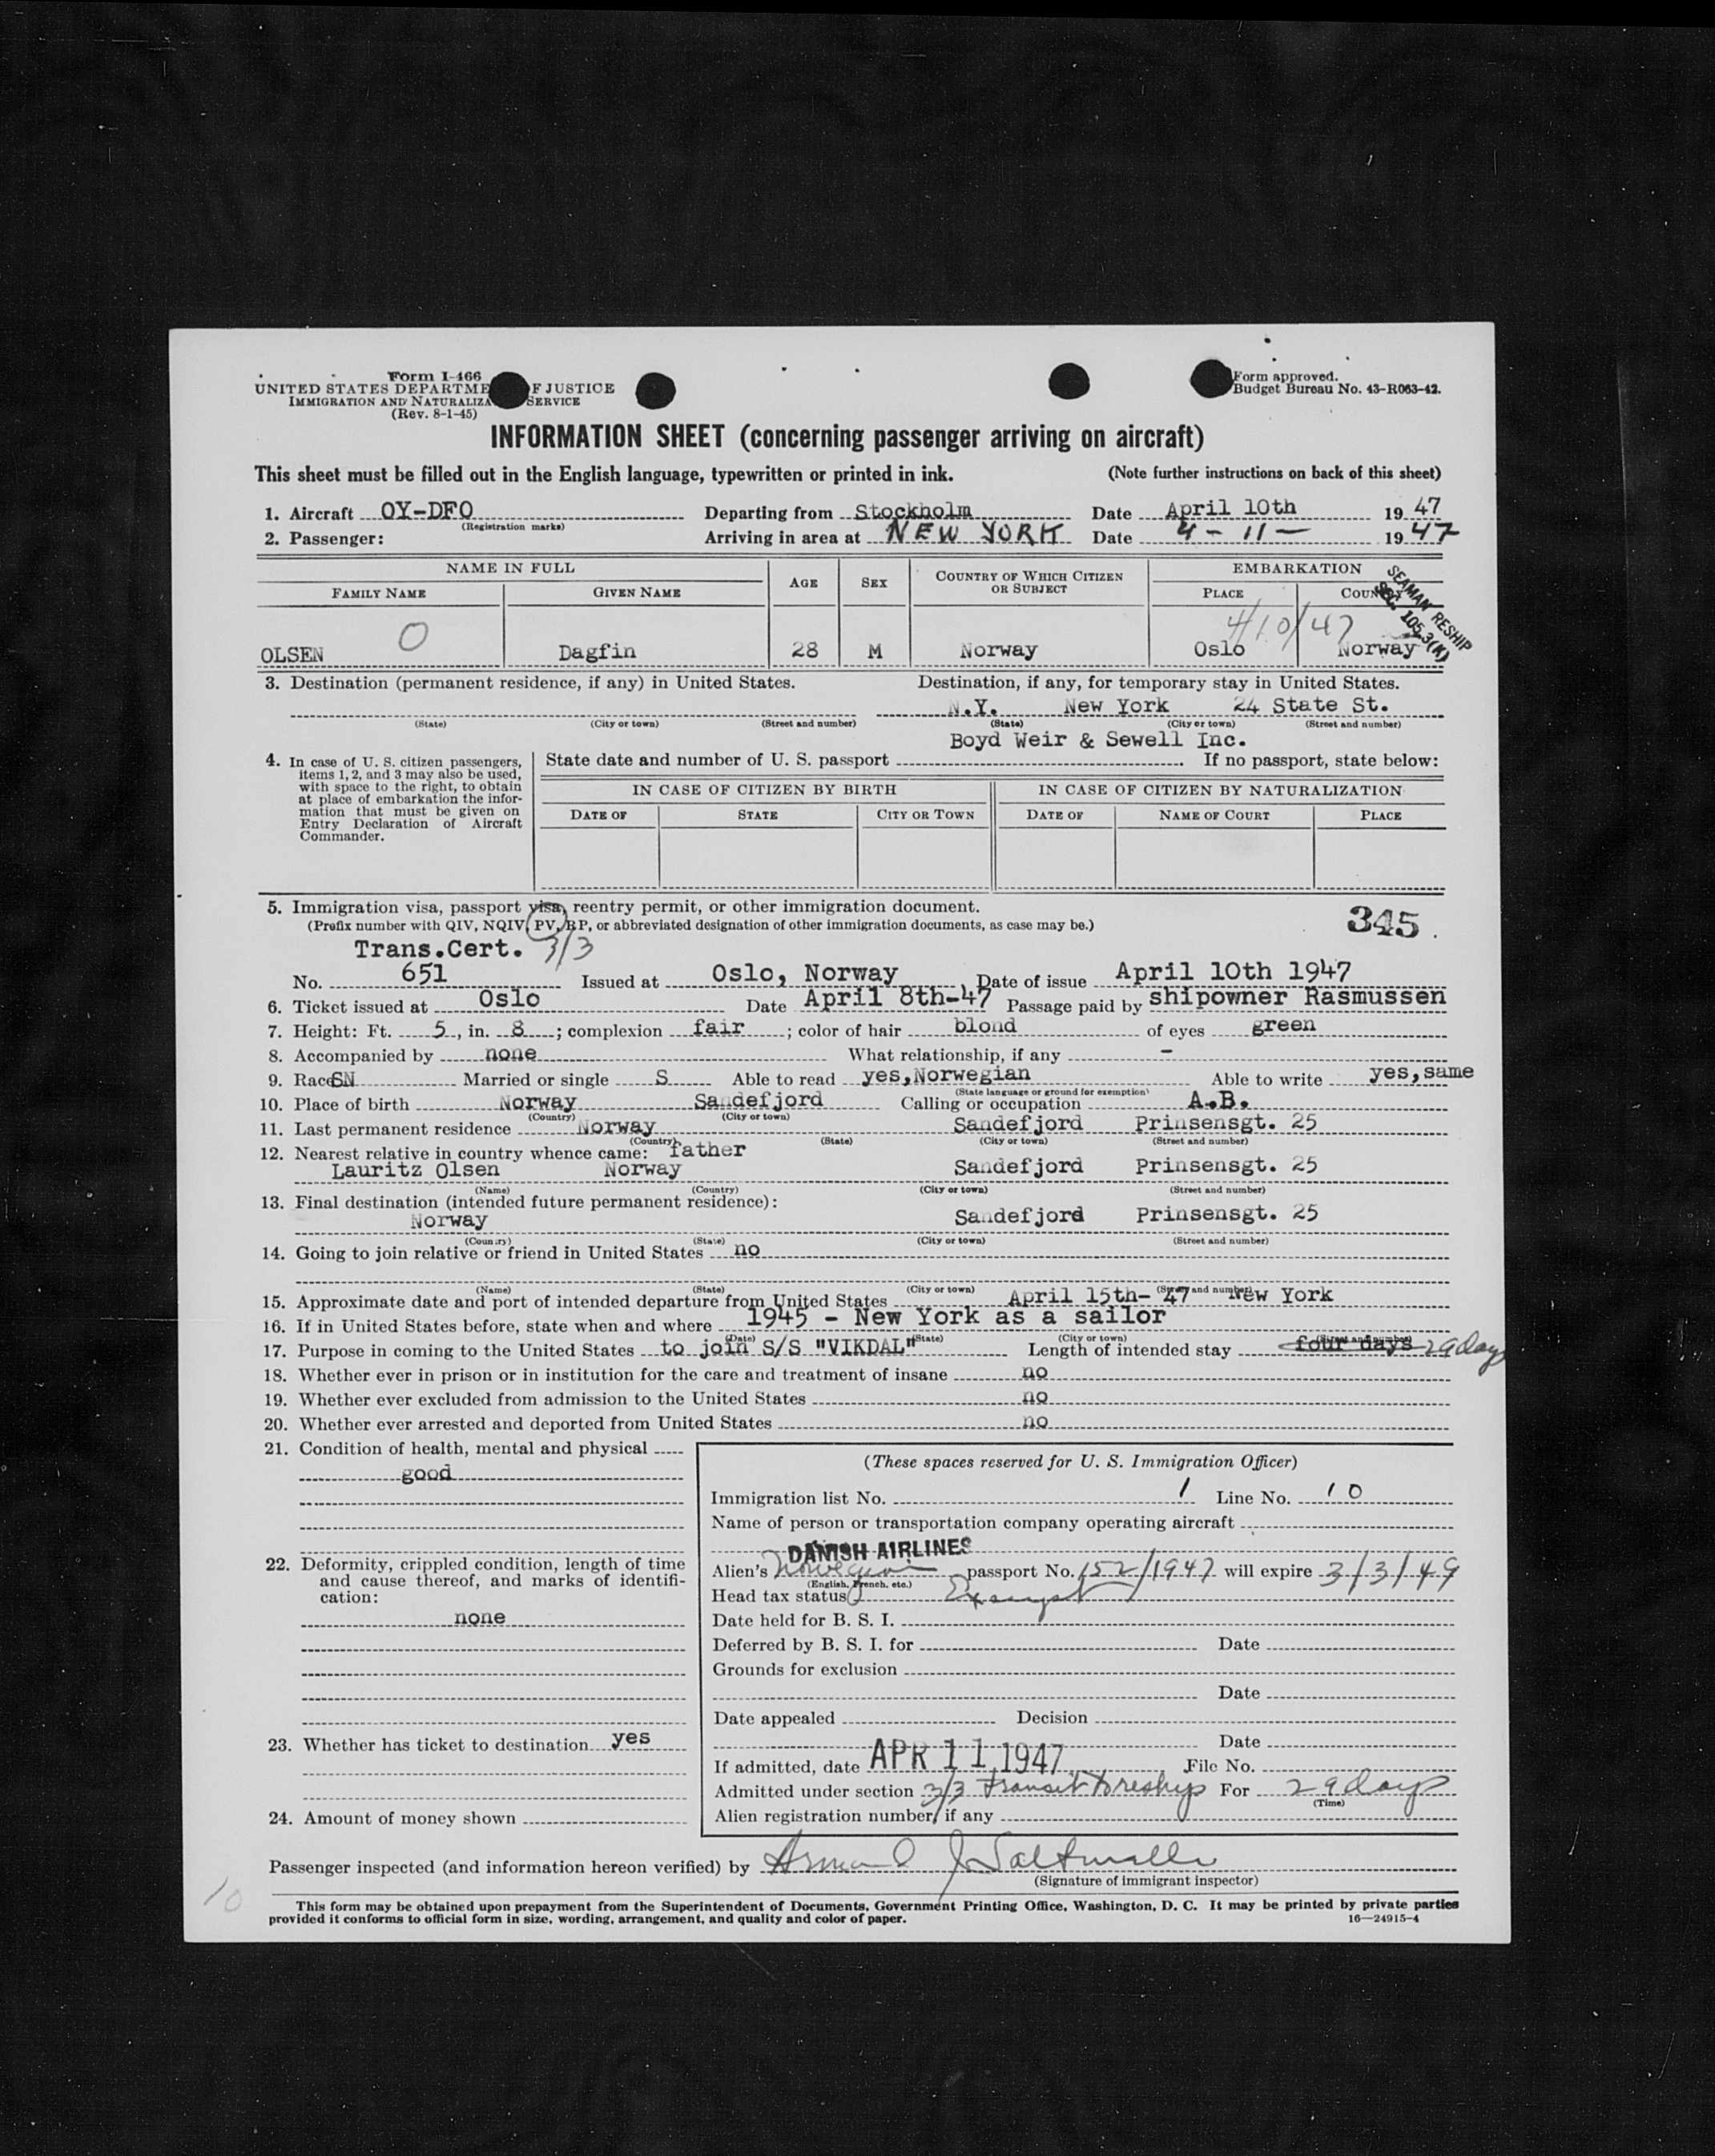 Form I-466
UNITED STATES DEPARTME F JUSTICE
IMMIGRATION AND NATURALIZA SERVICE
(Rev. 8-1-45)
Form approved.
Budget Bureau No. 43-R063-42.
INFORMATION SHEET (concerning passenger arriving on aircraft)
This sheet must be filled out in the English language, typewritten or printed in ink. (Note further instructions on back of this sheet)
1. Aircraft OY-DFO Departing from Stockholm Date April 10th 19 47
(Registration marks)
2. Passenger: Arriving in area at NEW YORK Date 4 - 11 - 19 47
NAME IN FULL AGE SEX COUNTRY OF WHICH CITIZEN OR SUBJECT EMBARKATION
FAMILY NAME GIVEN NAME PLACE COUNTRY
SEAMAN RESHIP
SEC. 105.3(K)
O 4/10/47
OLSEN Dagfin 28 M Norway Oslo Norway
3. Destination (permanent residence, if any) in United States. Destination, if any, for temporary stay in United States.
N.Y. New York 24 State St.
(State) (City or town) (Street and number) (State) (City or town) (Street and number)
Boyd Weir & Sewell Inc.
4. In case of U. S. citizen passengers, items 1, 2, and 3 may also be used, with space to the right, to obtain at place of embarkation the information that must be given on Entry Declaration of Aircraft Commander.
State date and number of U. S. passport If no passport, state below:
IN CASE OF CITIZEN BY BIRTH IN CASE OF CITIZEN BY NATURALIZATION
DATE OF STATE CITY OR TOWN DATE OF NAME OF COURT PLACE
5. Immigration visa, passport visa, reentry permit, or other immigration document.
(Prefix number with QIV, NQIV, PV, RP, or abbreviated designation of other immigration documents, as case may be.)
345
Trans.Cert. 3/3
No. 651 Issued at Oslo, Norway Date of issue April 10th 1947
6. Ticket issued at Oslo Date April 8th-47 Passage paid by shipowner Rasmussen
7. Height: Ft. 5, in. 8; complexion fair; color of hair blond of eyes green
8. Accompanied by none What relationship, if any -
9. Race SN Married or single S Able to read yes,Norwegian Able to write yes,same
(State language or ground for exemption)
10. Place of birth Norway Sandefjord Calling or occupation A.B.
(Country) (City or town)
11. Last permanent residence Norway Sandefjord Prinsensgt. 25
(Country) (State) (City or town) (Street and number)
12. Nearest relative in country whence came: father
Lauritz Olsen Norway Sandefjord Prinsensgt. 25
(Name) (Country) (City or town) (Street and number)
13. Final destination (intended future permanent residence):
Norway Sandefjord Prinsensgt. 25
(Country) (State) (City or town) (Street and number)
14. Going to join relative or friend in United States no
(Name) (State) (City or town) (Street and number)
15. Approximate date and port of intended departure from United States April 15th- 47 New York
16. If in United States before, state when and where 1945 - New York as a sailor
(Date) (State) (City or town) (Street and number)
17. Purpose in coming to the United States to join S/S "VIKDAL" Length of intended stay four days 29 days
18. Whether ever in prison or in institution for the care and treatment of insane no
19. Whether ever excluded from admission to the United States no
20. Whether ever arrested and deported from United States no
21. Condition of health, mental and physical
good
22. Deformity, crippled condition, length of time and cause thereof, and marks of identification:
none
23. Whether has ticket to destination yes
24. Amount of money shown
(These spaces reserved for U. S. Immigration Officer)
Immigration list No. 1 Line No. 10
Name of person or transportation company operating aircraft
DANISH AIRLINES
Alien's Norwegian passport No. 152/1947 will expire 3/3/49
(English, French, etc.)
Head tax status Exempt
Date held for B. S. I.
Deferred by B. S. I. for Date
Grounds for exclusion
Date
Date appealed Decision
Date
If admitted, date APR 11 1947 File No.
Admitted under section 3/3 transit to reship For 29 days
(Time)
Alien registration number, if any
Passenger inspected (and information hereon verified) by Armand J
(Signature of immigrant inspector)
10
This form may be obtained upon prepayment from the Superintendent of Documents, Government Printing Office, Washington, D. C. It may be printed by private parties
provided it conforms to official form in size, wording, arrangement, and quality and color of paper. 16—24915-4